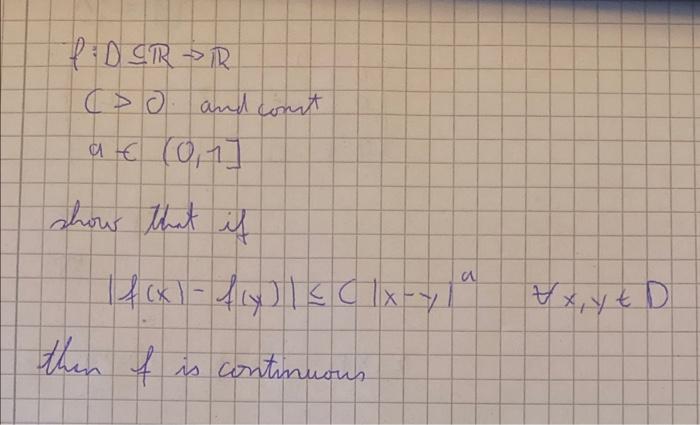 f: D ⊆ ℝ → ℝ
C > 0 and const
a ∈ (0,1]
show that if
|f(x) - f(y)| ≤ C |x-y|^a ∀ x, y ∈ D
then f is continuous